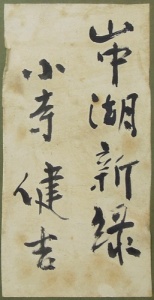 山中湖新緑
小寺健吉